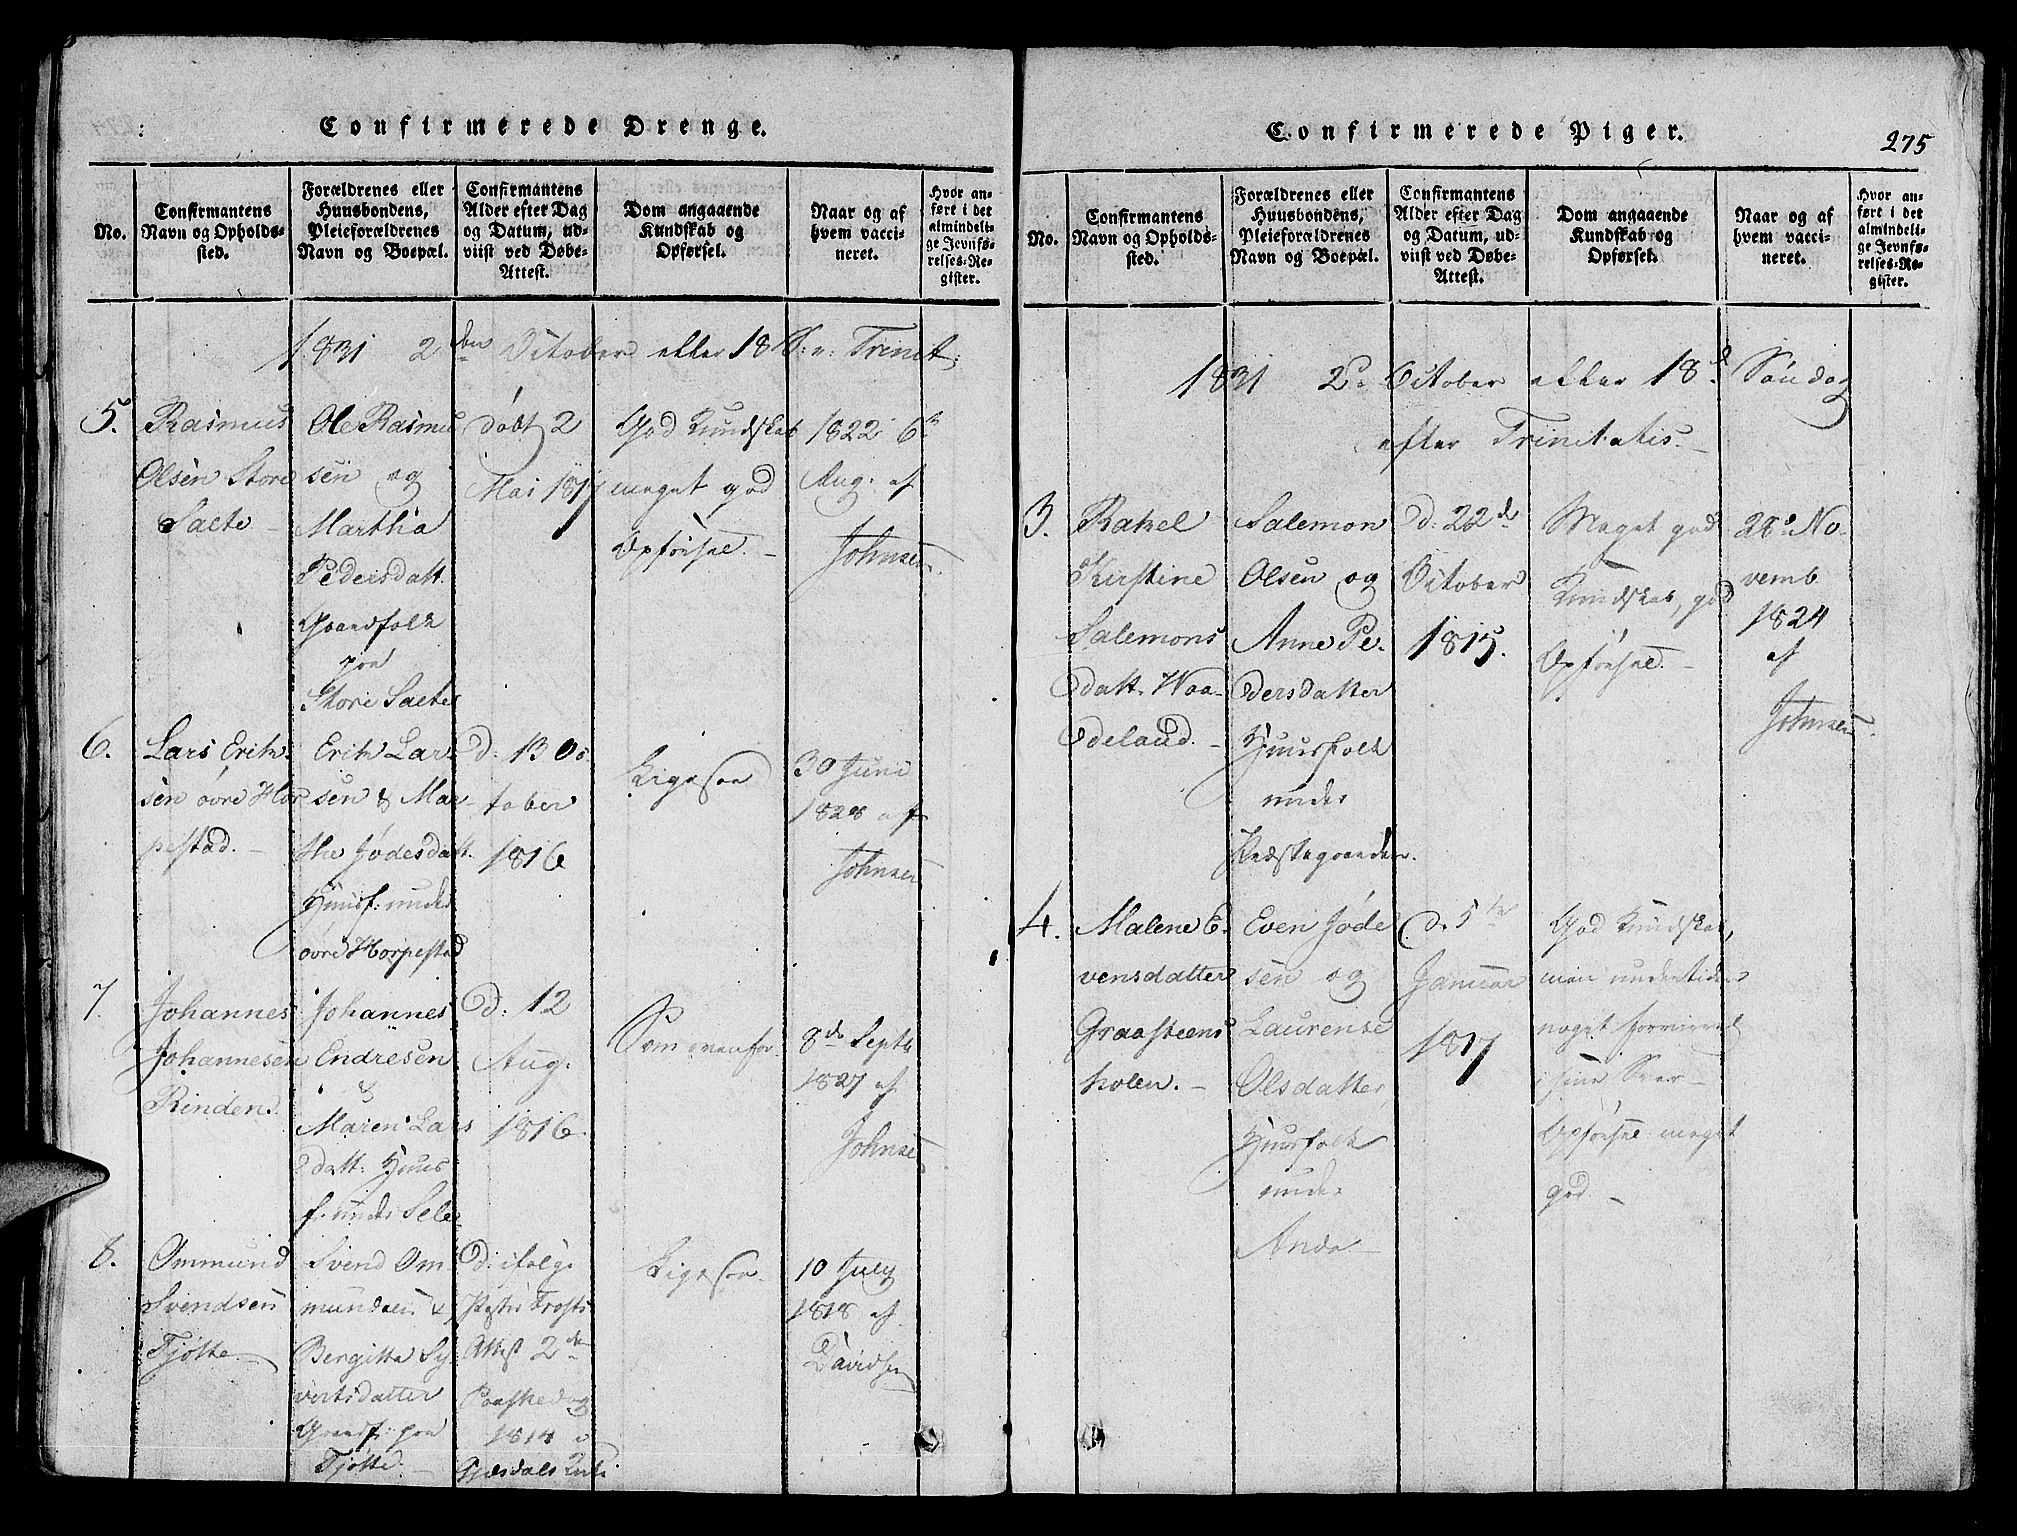 Confirmerede Drenge.
No.
Confirmantens
Navn og Opholds-
sted.
Forældrenes eller
Huusbondens,
Pleieforældrenes
Navn og Boepæl.
Confirmantens
Alder efter Dag
og Datum, ud-
viist ved Døbe-
Attest.
Dom angaaende
Kundskab og
Opførsel.
Naar og af
hvem vacci-
neret.
Hvor an-
ført i det
almindeli-
ge Jevnfø-
relses-Re-
gister.
1831 2den October efter 18 S: e: Trinit:
5.
Rasmus
Olsen Store
Saete
Ole Rasmu
sen og
Martha
Pedersdatt.
Gaardfolk
paa
Store Saete
døbt 2
Mai 1817
God Kundskab
meget god
Opførsel. -
1822 6te
Aug: af
Johnsen.
6.
Lars Erik-
sen øvre Hor
pestad. -
Erik Lar-
sen & Mar-
the Jødesdatt.
Huusf: under
øvre Horpestad
D. 13 Oc
tober
1816
Ligesaa
30 Juni
1828 af
Johnsen
7.
Johannes
Johannesen
Rinden.
Johannes
Endresen
&
Maren Lars
datt. Huus
f. under Sele
D: 12
Aug.
1816.
Som ovenfor.
8de Septb
1827 af
Johnsen
8.
Ommund
Svendsen
Tjøtte. -
Svend Om
mundsen &
Bergitta Sy-
vertsdatter
Gaardf: paa
Tjøtte. -
D: ifølge
Pastor Frosts
Attest 2de
Paaskedag
1814 i
Gjesdals
Ligesaa.
10 July
1818 af
Davidsen
Confirmerede Piger.
275
No.
Confirmantens
Navn og Opholds-
sted.
Forældrenes eller
Huusbondens,
Pleieforældrenes
Navn og Boepæl.
Confirmantens
Alder efter Dag
og Datum, ud-
viist ved Døbe-
Attest.
Dom angaaende
Kundskab og
Opførsel.
Naar og af
hvem vacci-
neret.
Hvor an-
ført i det
almindeli-
ge Jevnfø-
relses-Re-
gister.
1831 2d October efter 18d Søndag
efter Trinitatis. -
3.
Rakel
Kirstine
Salemons
datt. Waa-
deland. -
Salemon
Olsen og
Anne Pe-
dersdatter
Huusfolk
under
Præstegaarden.
D: 22de
October
1815.
Meget god
Kundskab, god
Opførsel. -
28d No-
vemb
1824
af
Johnsen.
4.
Malene E-
vensdatter
Graasteens
holen. -
Even Jøde
sen og
Laurense
Olsdatter,
Huusfolk
under
Anda -
D. 5te
Januar
1817
God Kundskab,
men undertiden
noget forvirret
i sine Svar -
Opførsel: meget
god -